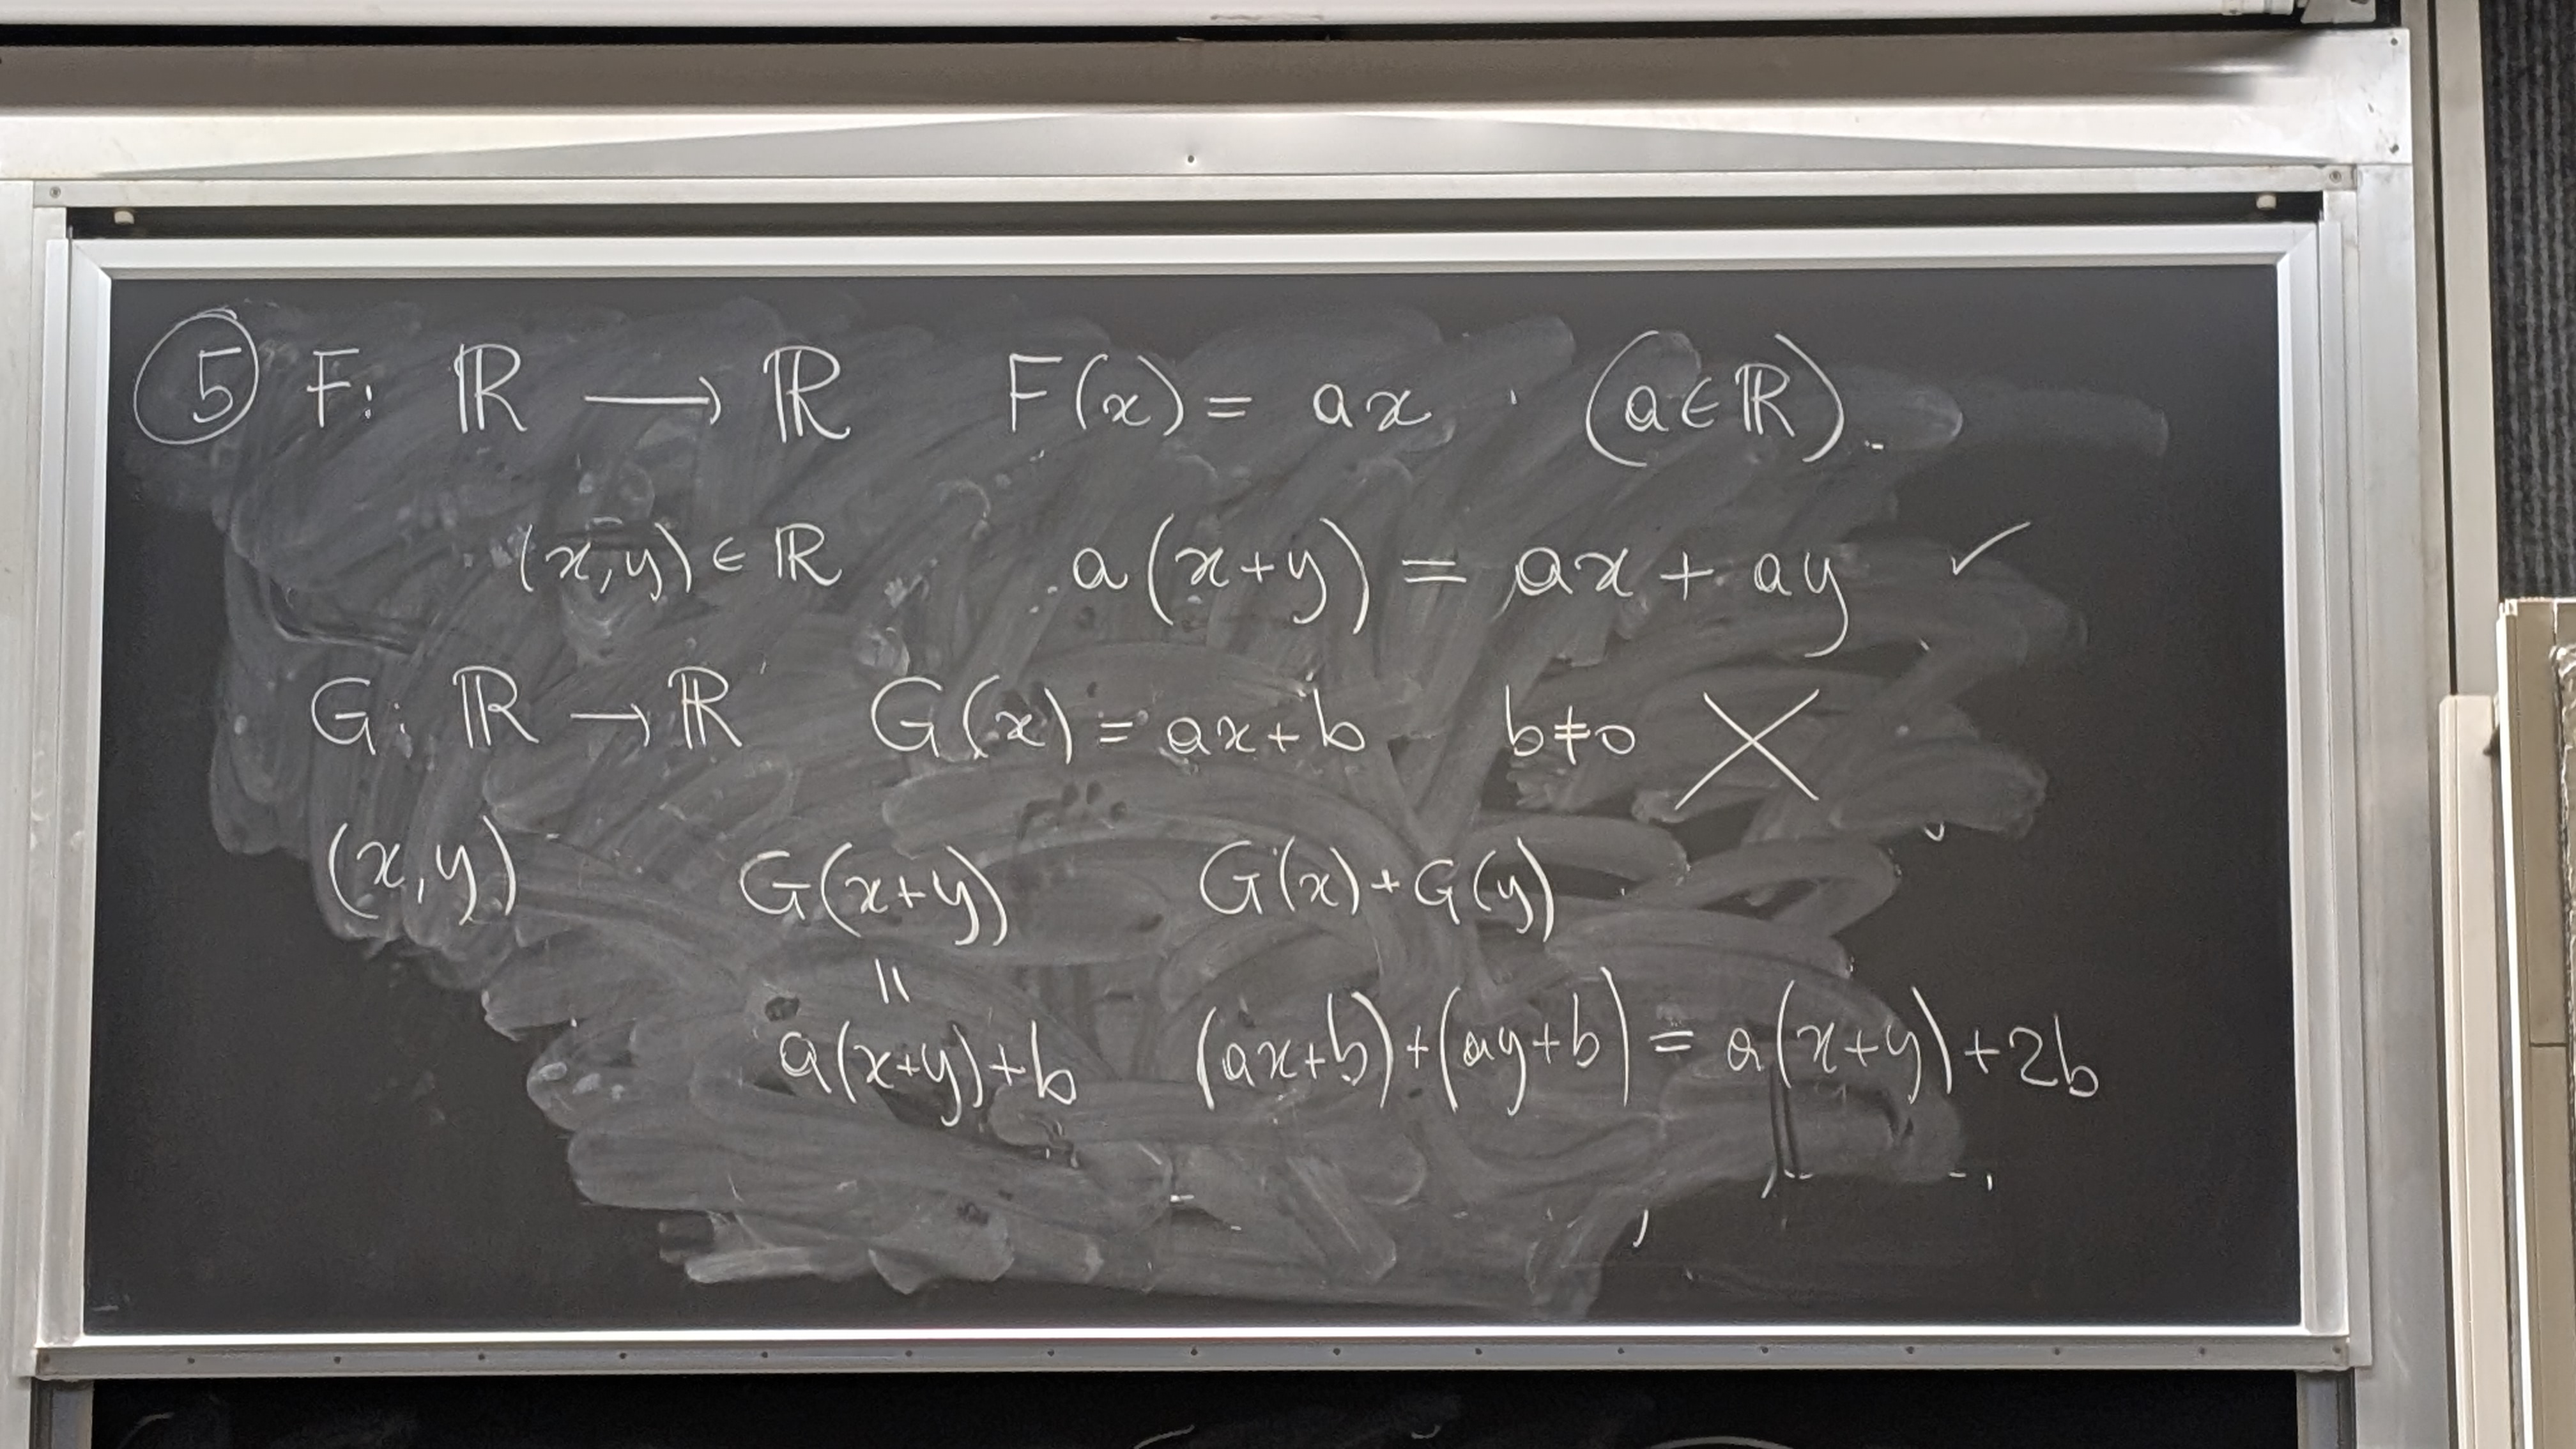 ⑤ F: ℝ ⟶ ℝ F(x) = ax . (a∈ℝ).
(x,y) ∈ ℝ a(x+y) = ax + ay ✓
G: ℝ → ℝ G(x) = ax+b b≠0 ╳
(x,y) G(x+y) G(x)+G(y)
॥
a(x+y)+b (ax+b)+(ay+b) = a(x+y)+2b